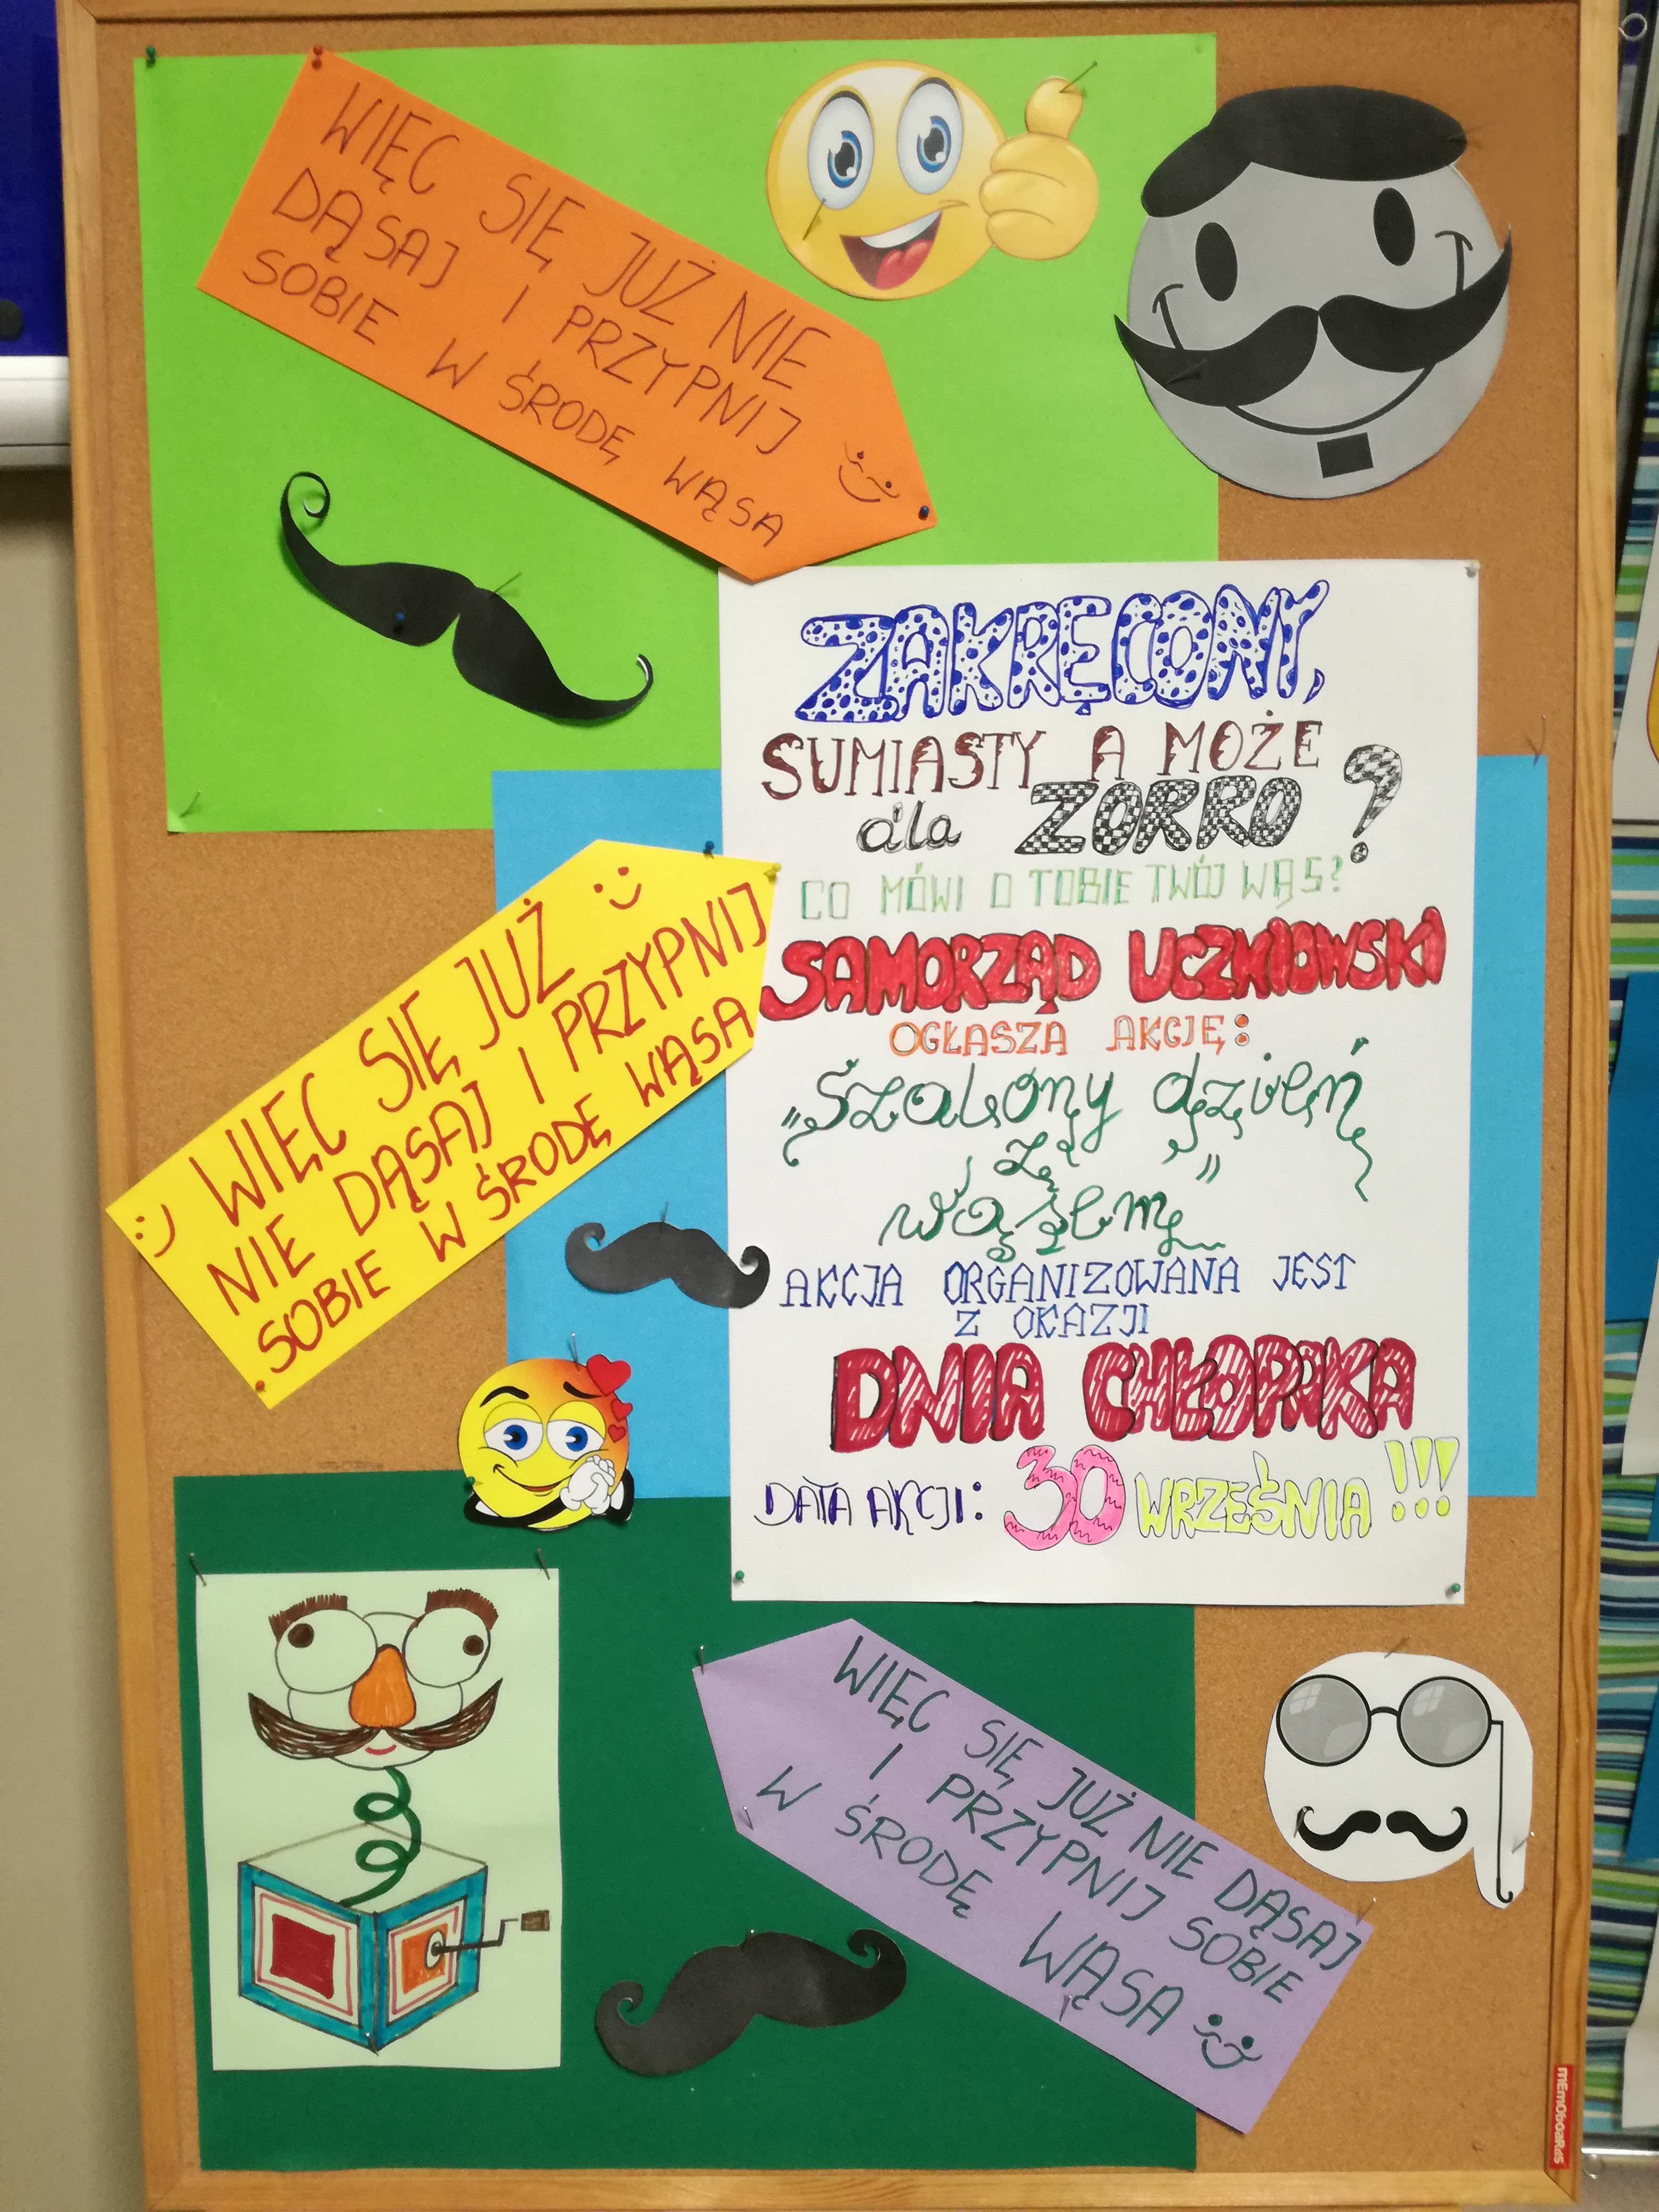 WIĘC SIĘ JUŻ NIE
DĄSAJ I PRZYPNIJ
SOBIE W ŚRODĘ WĄSA
ZAKRĘCONY,
SUMIASTY A MOŻE
dla ZORRO?
CO MÓWI O TOBIE TWÓJ WĄS?
SAMORZĄD UCZNIOWSKI
OGŁASZA AKCJĘ:
„Szalony dzień
z
wąsem”
AKCJA ORGANIZOWANA JEST
Z OKAZJI
DNIA CHŁOPAKA
DATA AKCJI: 30 WRZEŚNIA !!!
WIĘC SIĘ JUŻ :)
NIE DĄSAJ I PRZYPNIJ
:) SOBIE W ŚRODĘ WĄSA
WIĘC SIĘ JUŻ NIE DĄSAJ
I PRZYPNIJ SOBIE
W ŚRODĘ WĄSA
memoboards